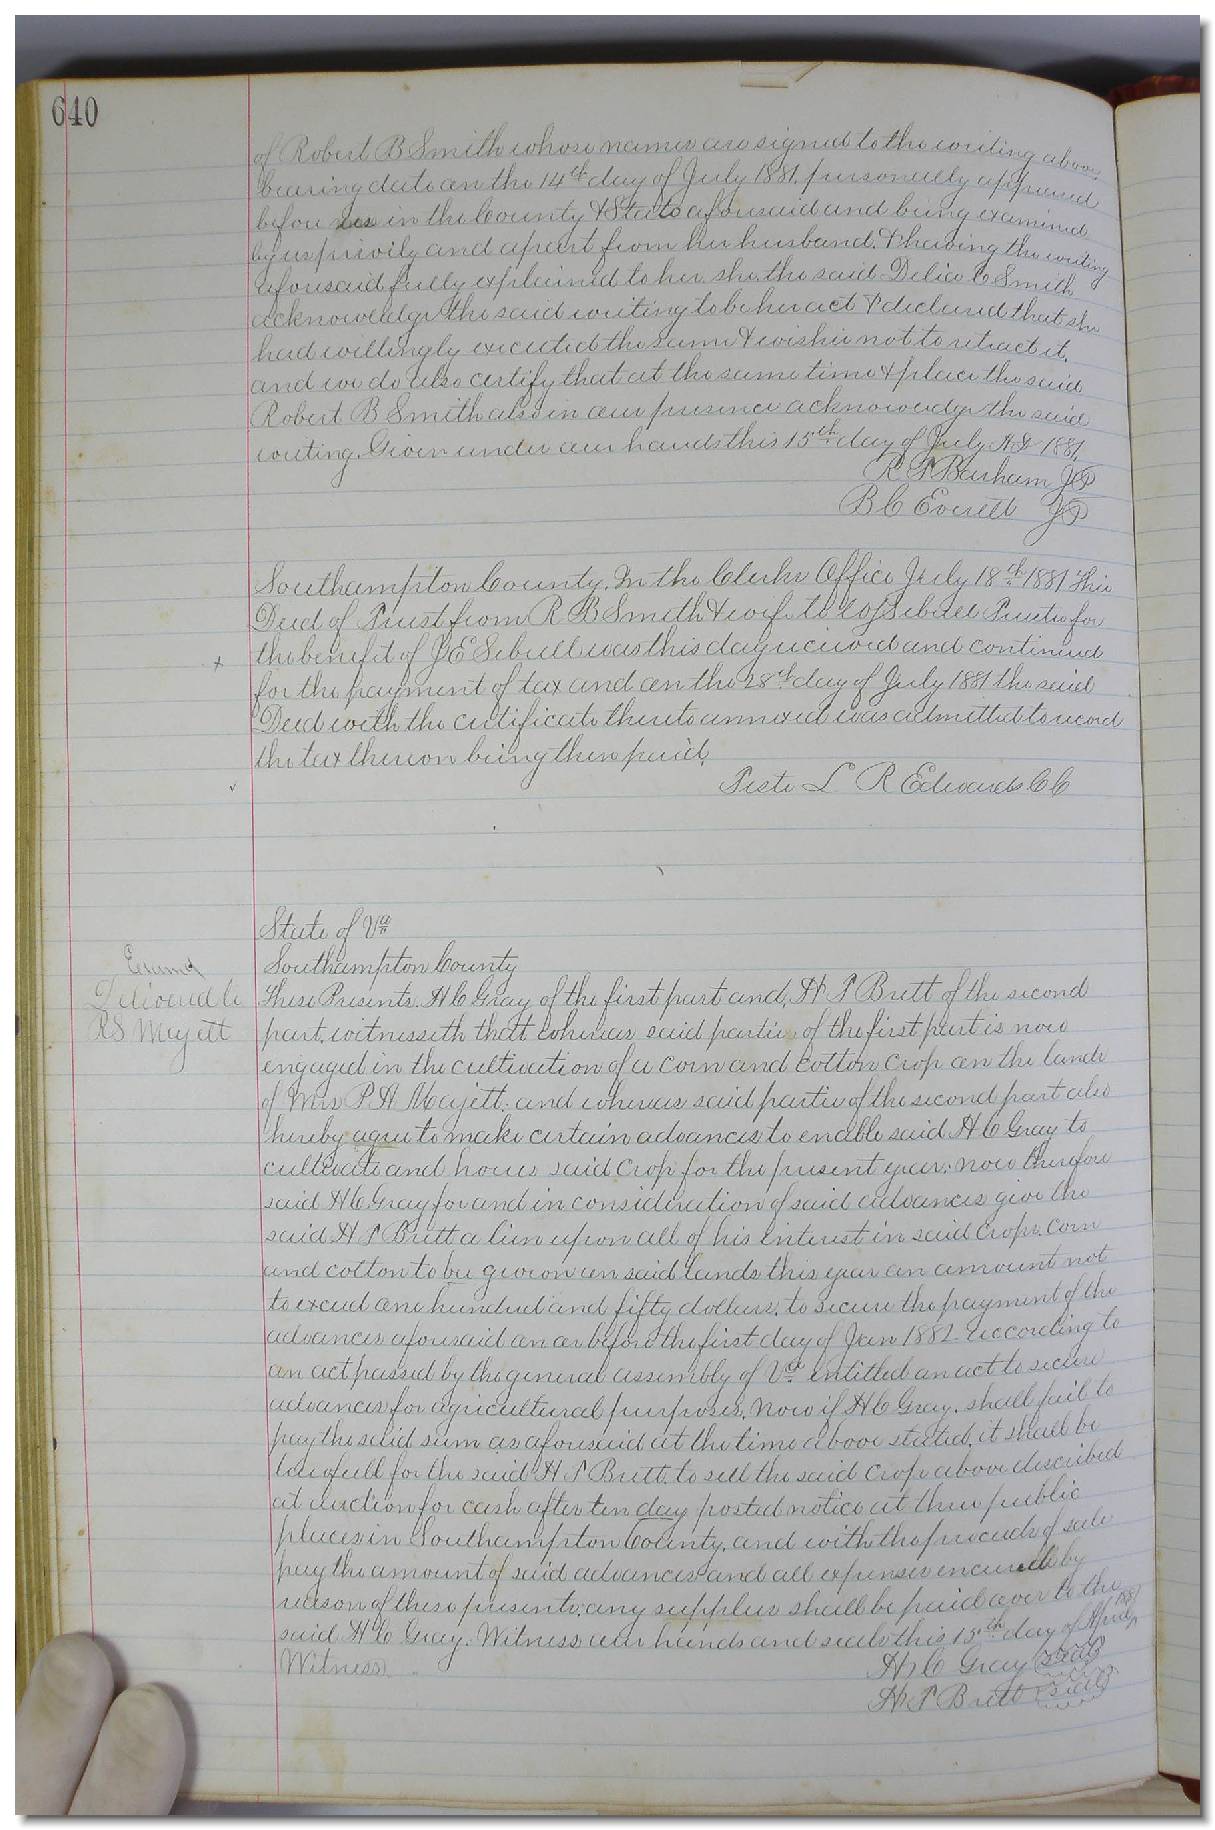 640
of Robert B Smith whose names are signed to the writing above
bearing date on the 14th day of July 1881. personally appeared
before us in the County & State aforesaid and being examined
by us privily and apart from her husband. & having the writing
aforesaid fully explained to her. she. the said Delia C Smith
acknowledge the said writing to be her act & declared that she
had willingly executed the same & wishes not to retract it.
and we do also certify that at the same time & place the said
Robert B Smith also in our presence acknowledge the said
writing. Given under our hands this 15th day of July A D 1881.
R P Barham J P
B C Everett J P
Southampton County. In the Clerks Office July 18th 1881 This
Deed of Trust from R B Smith & wife to Sebrell Trustee for
the benefit of J E Sebrell was this day received and continued
x
for the payment of tax and on the 28th day of July 1881 the said
Deed with the certificate thereto annexed was admitted to record
the tax thereon being then paid.
Teste L R Edwards C C
State of Va
Southampton County
Examd
Delivered to
R S Majett
These Presents. H C Gray of the first part and, H T Britt of the second
part. witnesseth that whereas said parties of the first part is now
engaged in the cultivation of a corn and cotton crop on the lands
of Mrs P A Majett. and whereas said parties of the second part also
hereby agree to make certain advances to enable said H C Gray to
cultivate and house said crop for the present year. now therefore
said H C Gray for and in consideration of said advances give the
said H T Britt a lien upon all of his interest in said crops. corn
and cotton to be grown on said lands this year an amount not
to exceed one hundred and fifty dollars. to secure the payment of the
advances aforesaid on or before the first day of Jan 1882 according to
an act passed by the general assembly of Va entitled an act to secure
advances for agricultural purposes. Now if H C Gray. shall fail to
pay the said sum as aforesaid at the time above stated. it shall be
lawfull for the said H T Britt. to sell the said crop above described
at auction for cash after ten day posted notice at three public
places in Southampton County. and with the proceeds of sale
pay the amount of said advances and all expenses incured by
reason of these presents. any supplus shall be paid over to the
said H C Gray. Witness our hands and seals this 15th day of April 1881
Witness
H C Gray seal
H T Britt seal